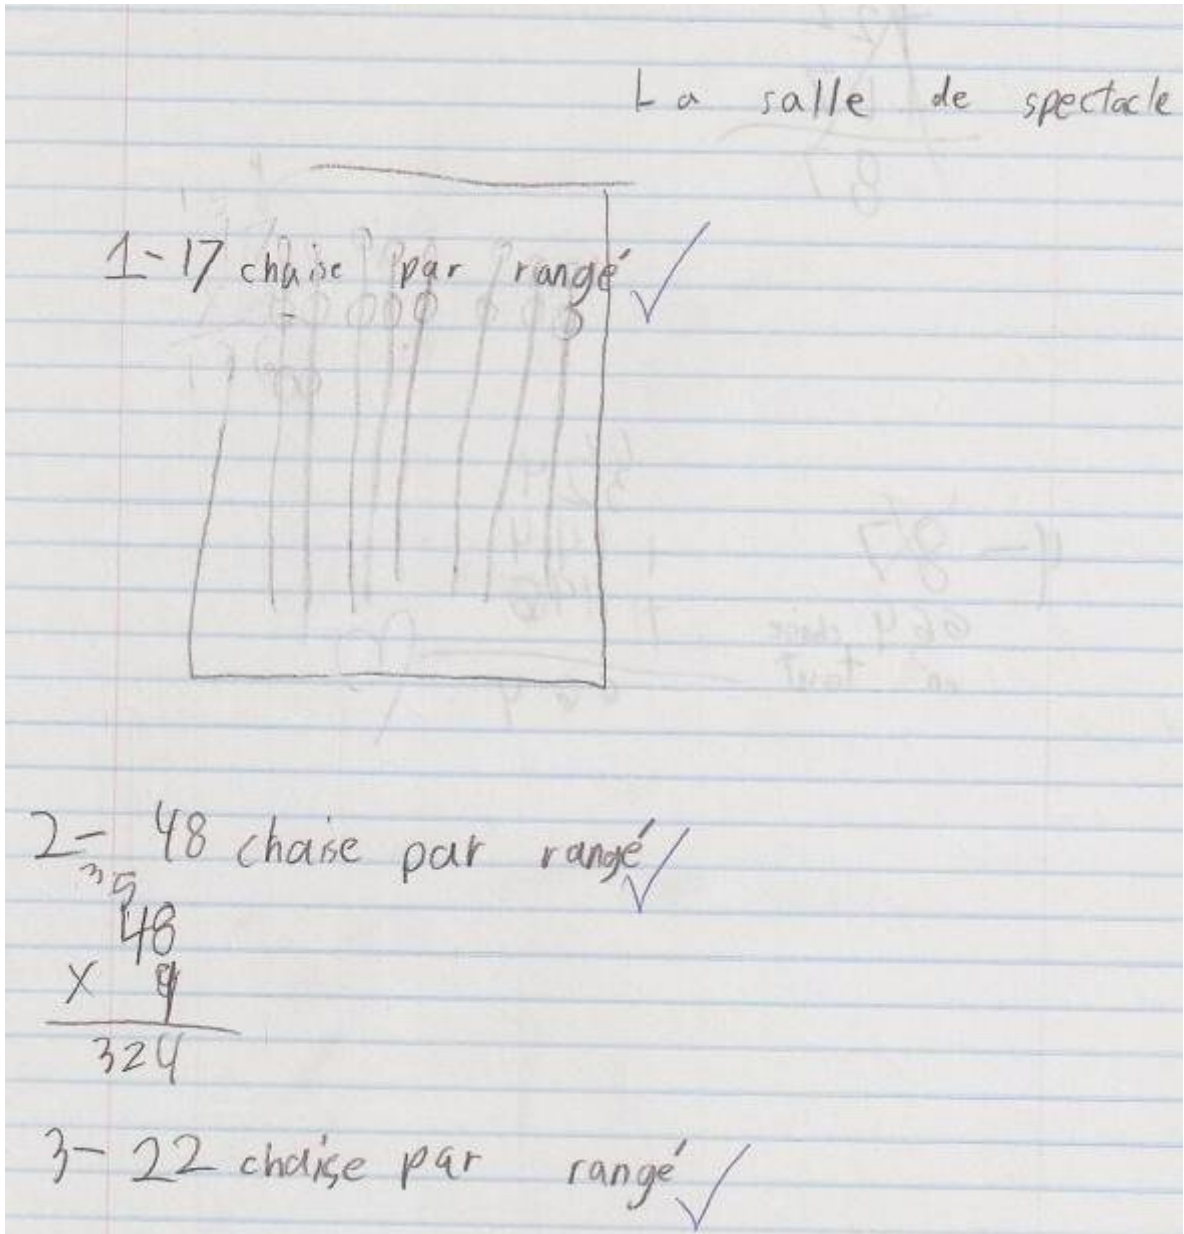 La salle de spectacle
1-17 chaise par rangé
2- 48 chaise par rangé
3 5
48
x 9
324
3- 22 chaise par rangé